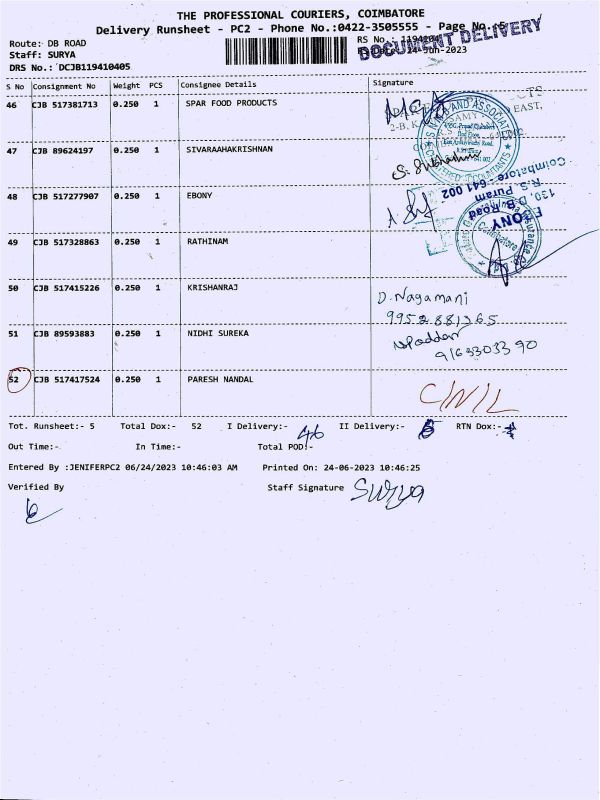 THE PROFESSIONAL COURIERS, COIMBATORE
Delivery Runsheet - PC2 - Phone No.:0422-3505555 - Page No.:5
DOCUMENT DELIVERY
Route: DB ROAD
Staff: SURYA
DRS No.: DCJB119410405
RS No.:
24-Jun-2023
S No Consignment No Weight PCS Consignee Details Signature
46 CJB 517381713 0.250 1 SPAR FOOD PRODUCTS
47 CJB 89624197 0.250 1 SIVARAAHAKRISHNAN
48 CJB 517277907 0.250 1 EBONY
EBONY
130, D.B. Road
R.S. Puram
Coimbatore - 641 002
49 CJB 517328863 0.250 1 RATHINAM
50 CJB 517415226 0.250 1 KRISHANRAJ
D. Nagamani
9952881265
51 CJB 89593883 0.250 1 NIDHI SUREKA
9163303390
52 CJB 517417524 0.250 1 PARESH NANDAL
Tot. Runsheet:- 5 Total Dox:- 52 I Delivery:- 46 II Delivery:- RTN Dox:-
Out Time:- In Time:- Total POD:-
Entered By :JENIFERPC2 06/24/2023 10:46:03 AM Printed On: 24-06-2023 10:46:25
Verified By Staff Signature Surya